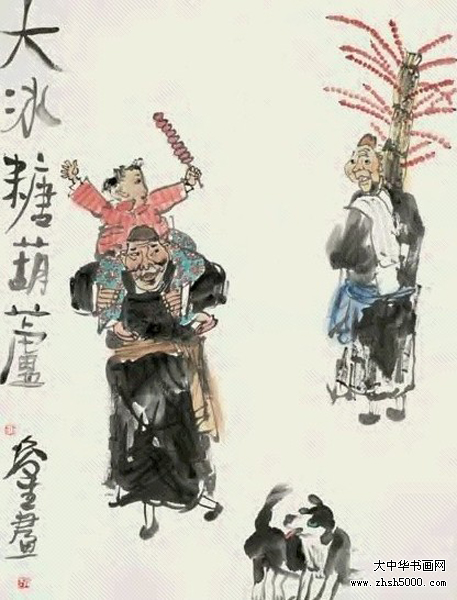 大冰糖葫蘆
畫
大中华书画网
www.zhsh5000.com